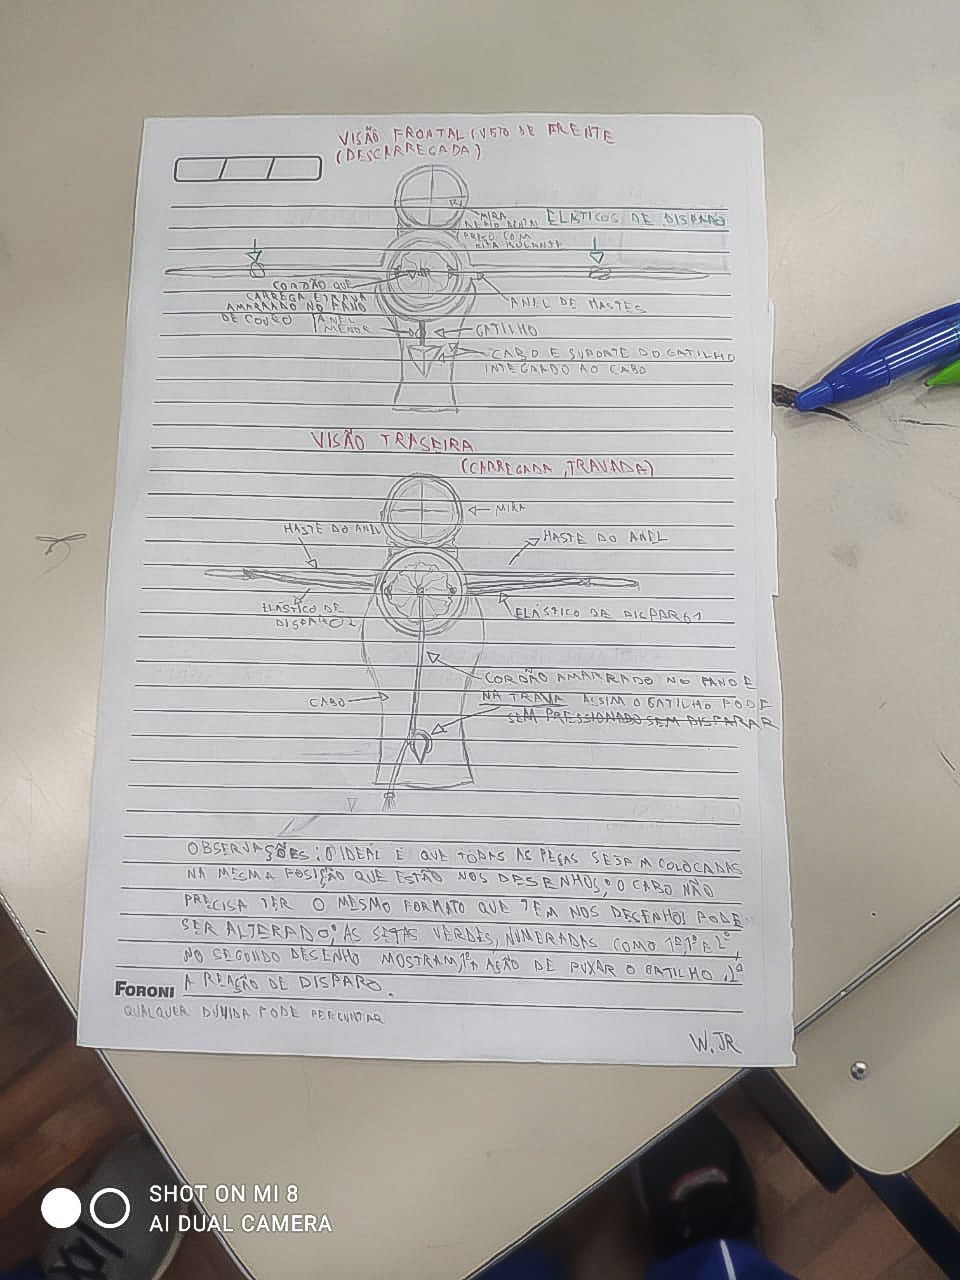 VISÃO FRONTAL (VISTO DE FRENTE
(DESCARREGADA)
MIRA
ELÁSTICOS DE DISPARO
PRESO COM
FITA ISOLANTE
CORDÃO QUE
CARREGA E TRAVA
AMARRADO NO PANO
DE COURO
ANEL DE HASTES
ANEL
MENOR
GATILHO
CABO E SUPORTE DO GATILHO
INTEGRADO AO CABO
VISÃO TRASEIRA
(CARREGADA, TRAVADA)
MIRA
HASTE DO ANEL
HASTE DO ANEL
ELÁSTICO DE
DISPARO 2
ELÁSTICO DE DISPARO 1
CORDÃO AMARRADO NO PANO E
NA TRAVA ASSIM O GATILHO PODE
SEM PRESSIONADO SEM DISPARAR
CABO
OBSERVAÇÕES: O IDEAL É QUE TODAS AS PEÇAS SEJAM COLOCADAS
NA MESMA POSIÇÃO QUE ESTÃO NOS DESENHOS; O CABO NÃO
PRECISA TER O MESMO FORMATO QUE TEM NOS DESENHOS PODE
SER ALTERADO; AS SETAS VERDES, NUMERADAS COMO 1º, 1º E 2º,
NO SEGUNDO DESENHO MOSTRAM, 1ª A AÇÃO DE PUXAR O GATILHO, 2ª
A REAÇÃO DE DISPARO.
FORONI
QUALQUER DÚVIDA PODE PERGUNTAR
W.JR
SHOT ON MI 8
AI DUAL CAMERA